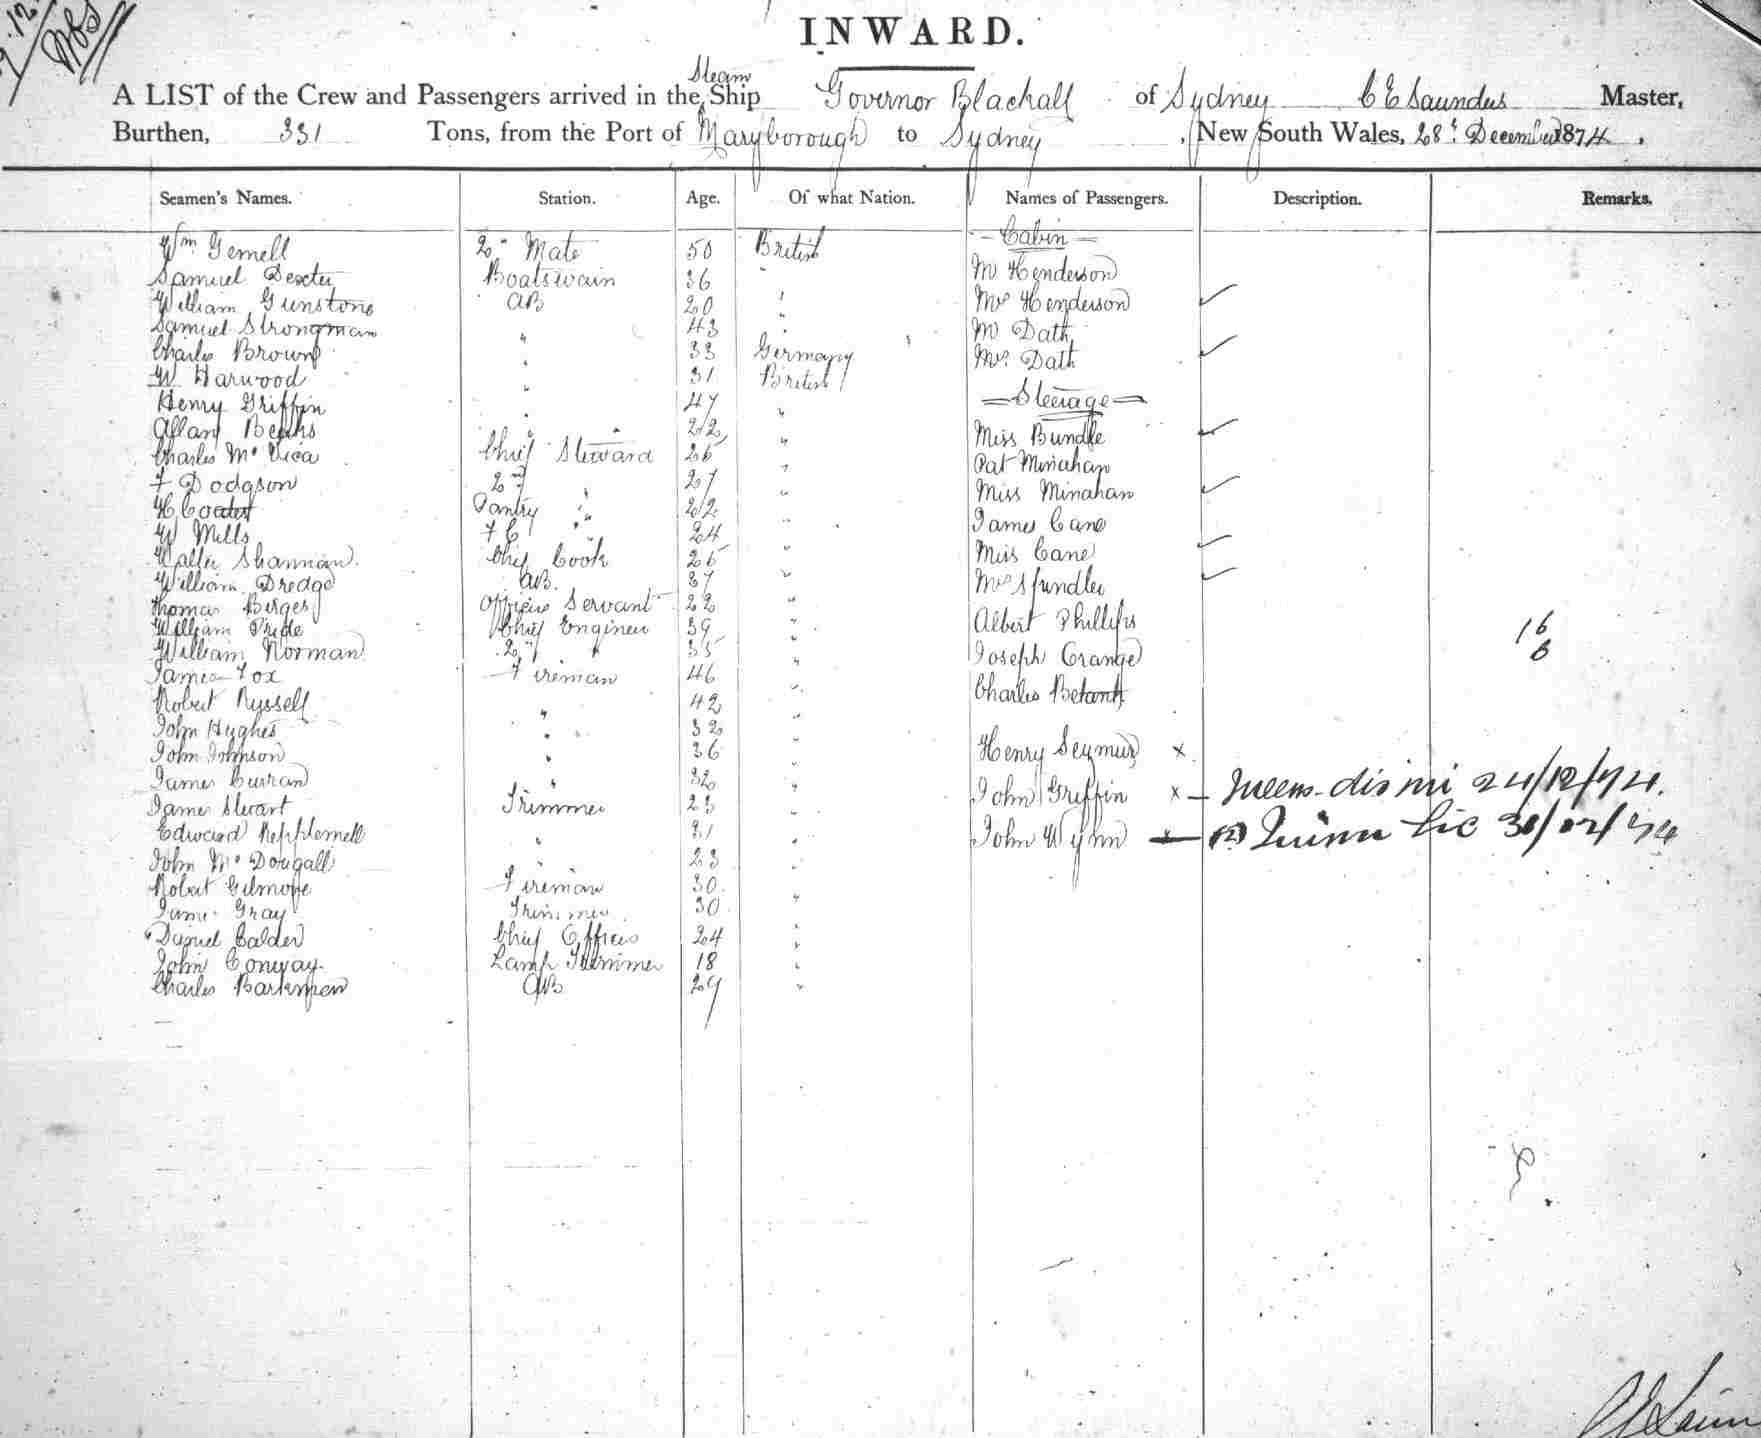 INWARD.
A LIST of the Crew and Passengers arrived in the Steam Ship Governor Blackall of Sydney C E Saunders Master,
Burthen, 331 Tons, from the Port of Maryborough to Sydney, New South Wales, 28t December 1874.
Seamen's Names. Station. Age. Of what Nation. Names of Passengers. Description. Remarks.
Wm Gemell 2" Mate 50 British — Cabin —
Samuel Dexter Boatswain 36 " Mr Henderson
William Gunstone AB 20 " Mrs Henderson ✓
Samuel Strongman " 43 " Mr Dath
Charles Brown " 33 Germany Mrs Dath ✓
W Harwood " 31 British
Henry Griffin " 47 " — Steerage —
Allan " 22 " Miss Bundle ✓
Charles Mc Vica Chief Steward 25 " Pat Minahan
F Dodgson 2nd " 27 " Miss Minahan ✓
H Coates Pantry " 22 " James Cane
W Mills F C " 24 " Miss Cane ✓
Walter Shannan Chief Cook 25 " Mrs Spundler ✓
William Dredge AB. 37 "
Thomas Birges Officers Servant 22 " Albert Phillips
William Pride Chief Engineer 39 " 16
William Norman 2" " 35 " Joseph Grange 6
James Fox Fireman 46 " Charles
Robert Russell " 42 "
John Hughes " 32 "
John Johnson " 36 " Henry Seymur x
James Curran " 32 "
James Stewart Trimmer 23 " John Griffin x — 24/12/74.
Edward " 21 " John Wynn x — Quinn 30/12/74
John Mc Dougall " 23 "
Robert Gilmore Fireman 30 "
James Gray Trimmer 30 "
Daniel Calder Chief Officer 24 "
John Conway Lamp Trimmer 18 "
Charles AB 29 "